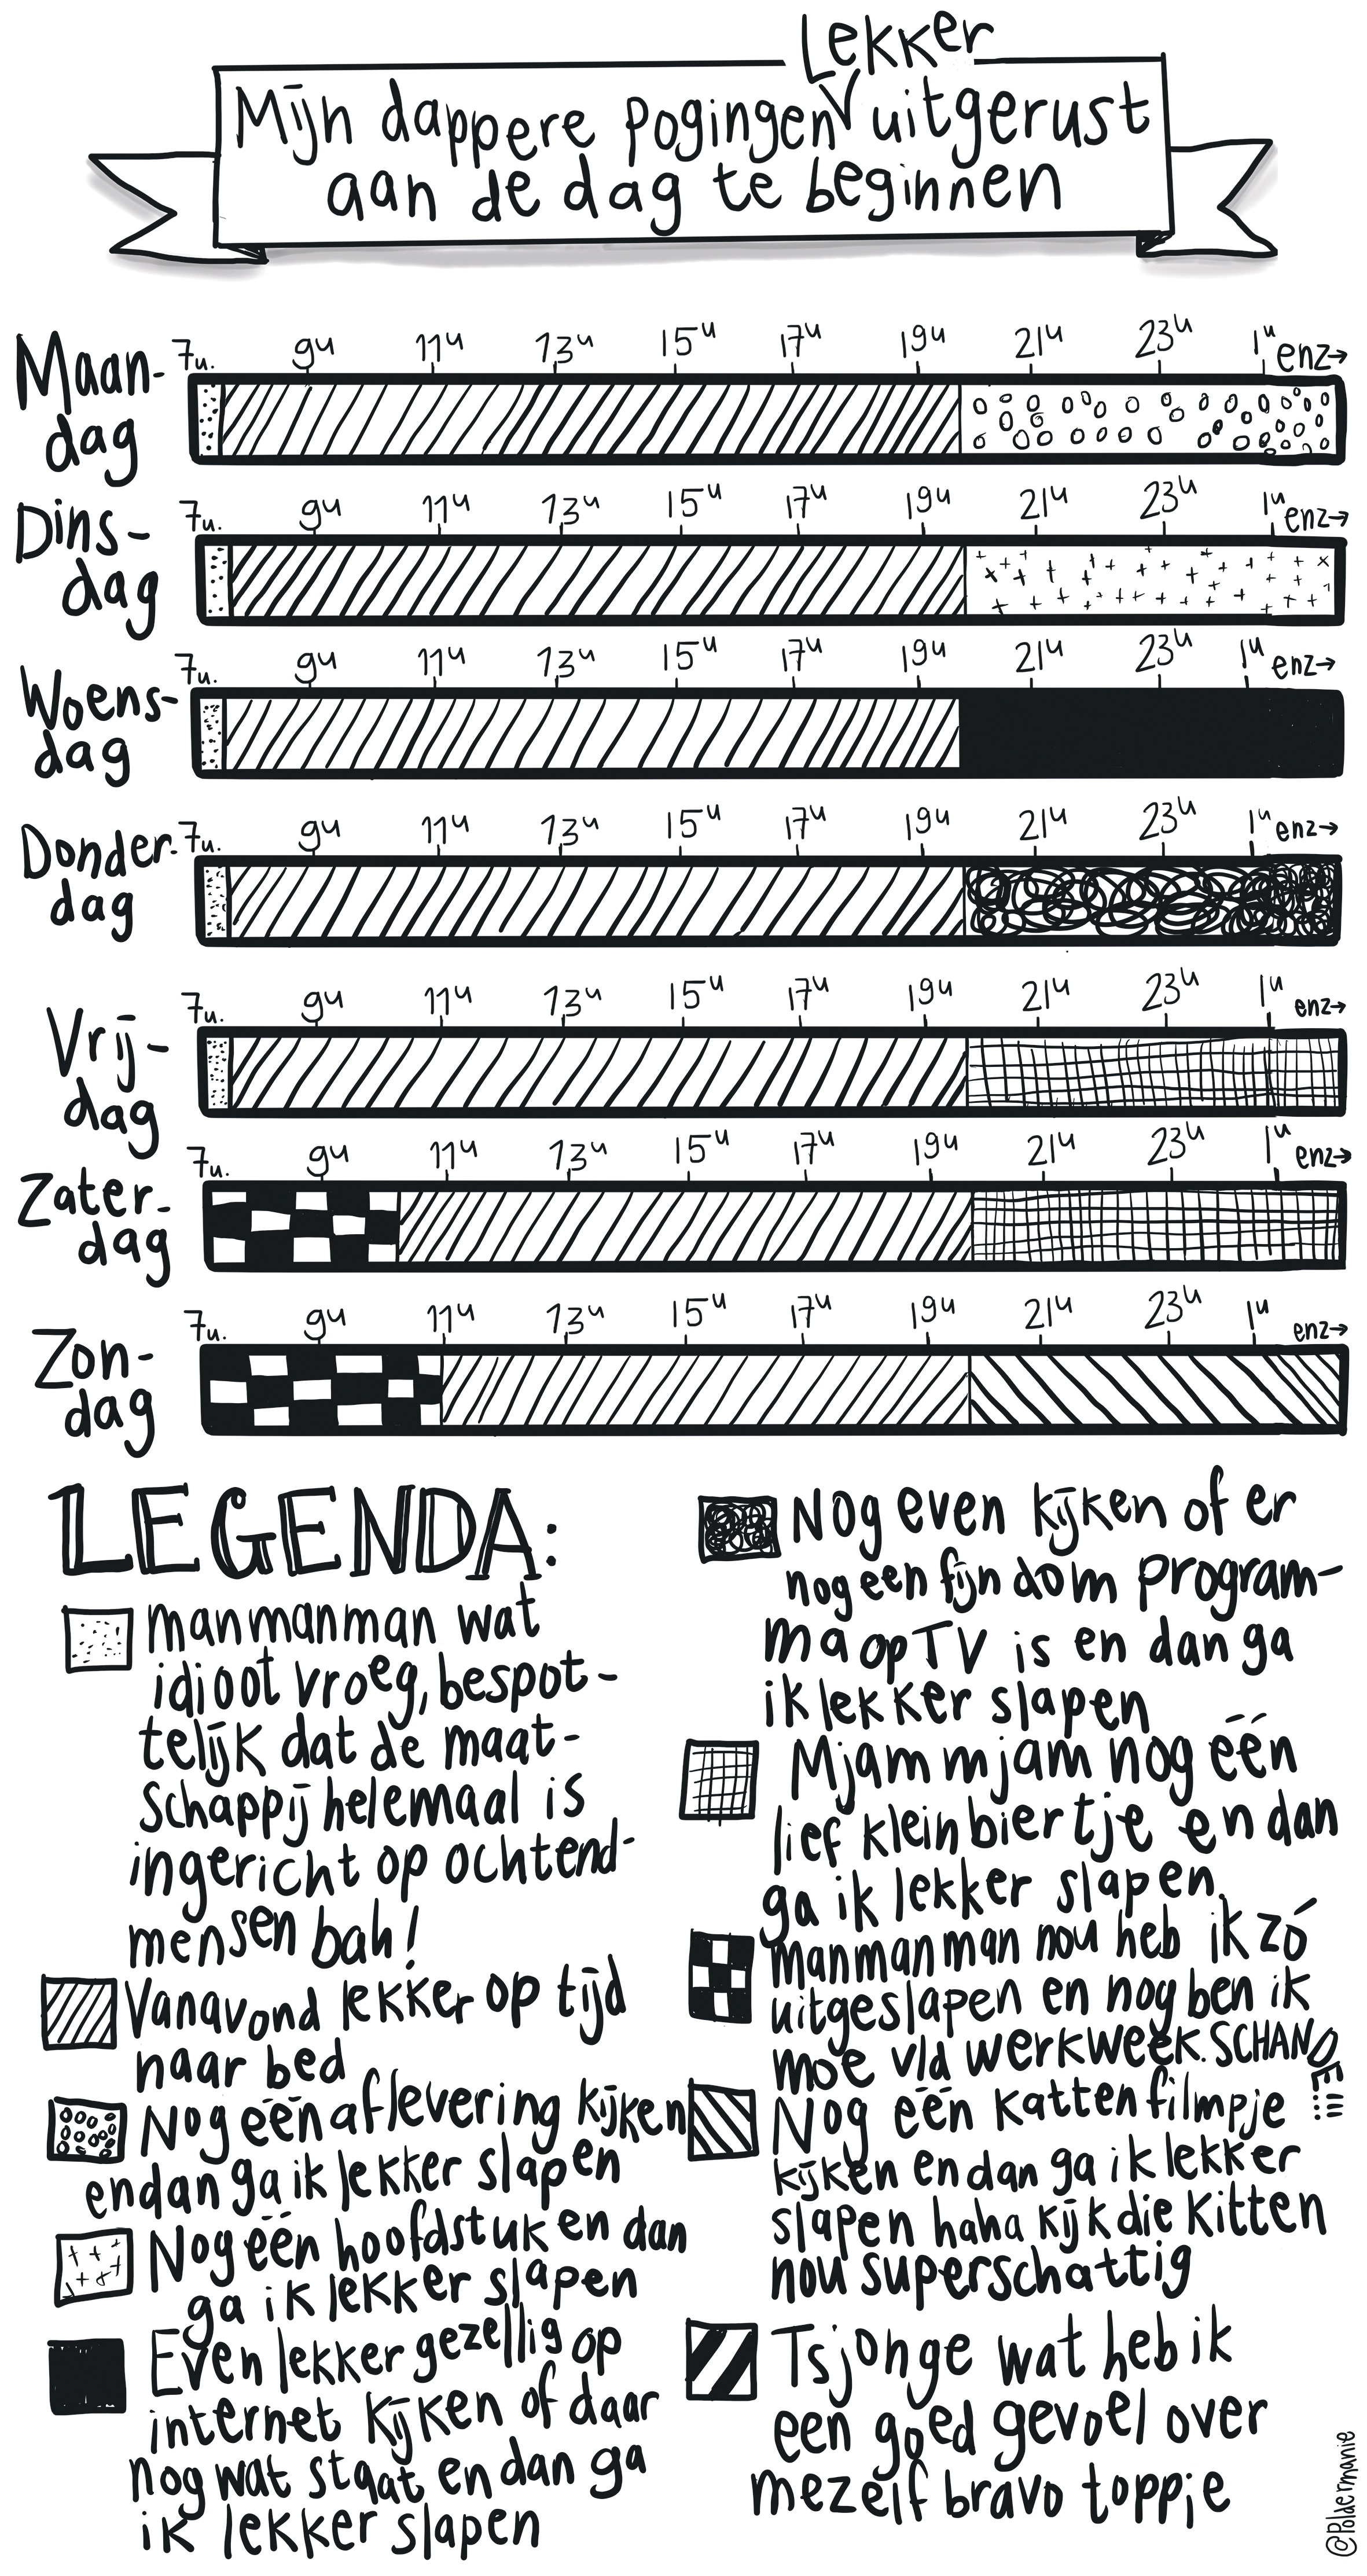 Mijn dappere pogingen Lekker uitgerust
aan de dag te beginnen
Maan-
dag
7u. 9u 11u 13u 15u 17u 19u 21u 23u 1u enz→
Dins-
dag
7u. 9u 11u 13u 15u 17u 19u 21u 23u 1u enz→
Woens-
dag
7u. 9u 11u 13u 15u 17u 19u 21u 23u 1u enz→
Donder-
dag
7u. 9u 11u 13u 15u 17u 19u 21u 23u 1u enz→
Vrij-
dag
7u. 9u 11u 13u 15u 17u 19u 21u 23u 1u enz→
Zater-
dag
7u. 9u 11u 13u 15u 17u 19u 21u 23u 1u enz→
Zon-
dag
7u. 9u 11u 13u 15u 17u 19u 21u 23u 1u enz→
LEGENDA:
manmanman wat
idioot vroeg, bespot-
telijk dat de maat-
schappij helemaal is
ingericht op ochtend-
mensen bah!
Vanavond lekker op tijd
naar bed
Nog één aflevering kijken
en dan ga ik lekker slapen
Nog één hoofdstuk en dan
ga ik lekker slapen
Even lekker gezellig op
internet kijken of daar
nog wat staat en dan ga
ik lekker slapen
Nog even kijken of er
nog een fijn dom program-
ma op TV is en dan ga
ik lekker slapen
Mjam mjam nog één
lief klein biertje en dan
ga ik lekker slapen.
manmanman nou heb ik zó
uitgeslapen en nog ben ik
moe v/d werkweek. SCHANDE!!!
Nog één kattenfilmpje
kijken en dan ga ik lekker
slapen haha kijk die kitten
nou superschattig
Tsjonge wat heb ik
een goed gevoel over
mezelf bravo toppie
@Poldermanie